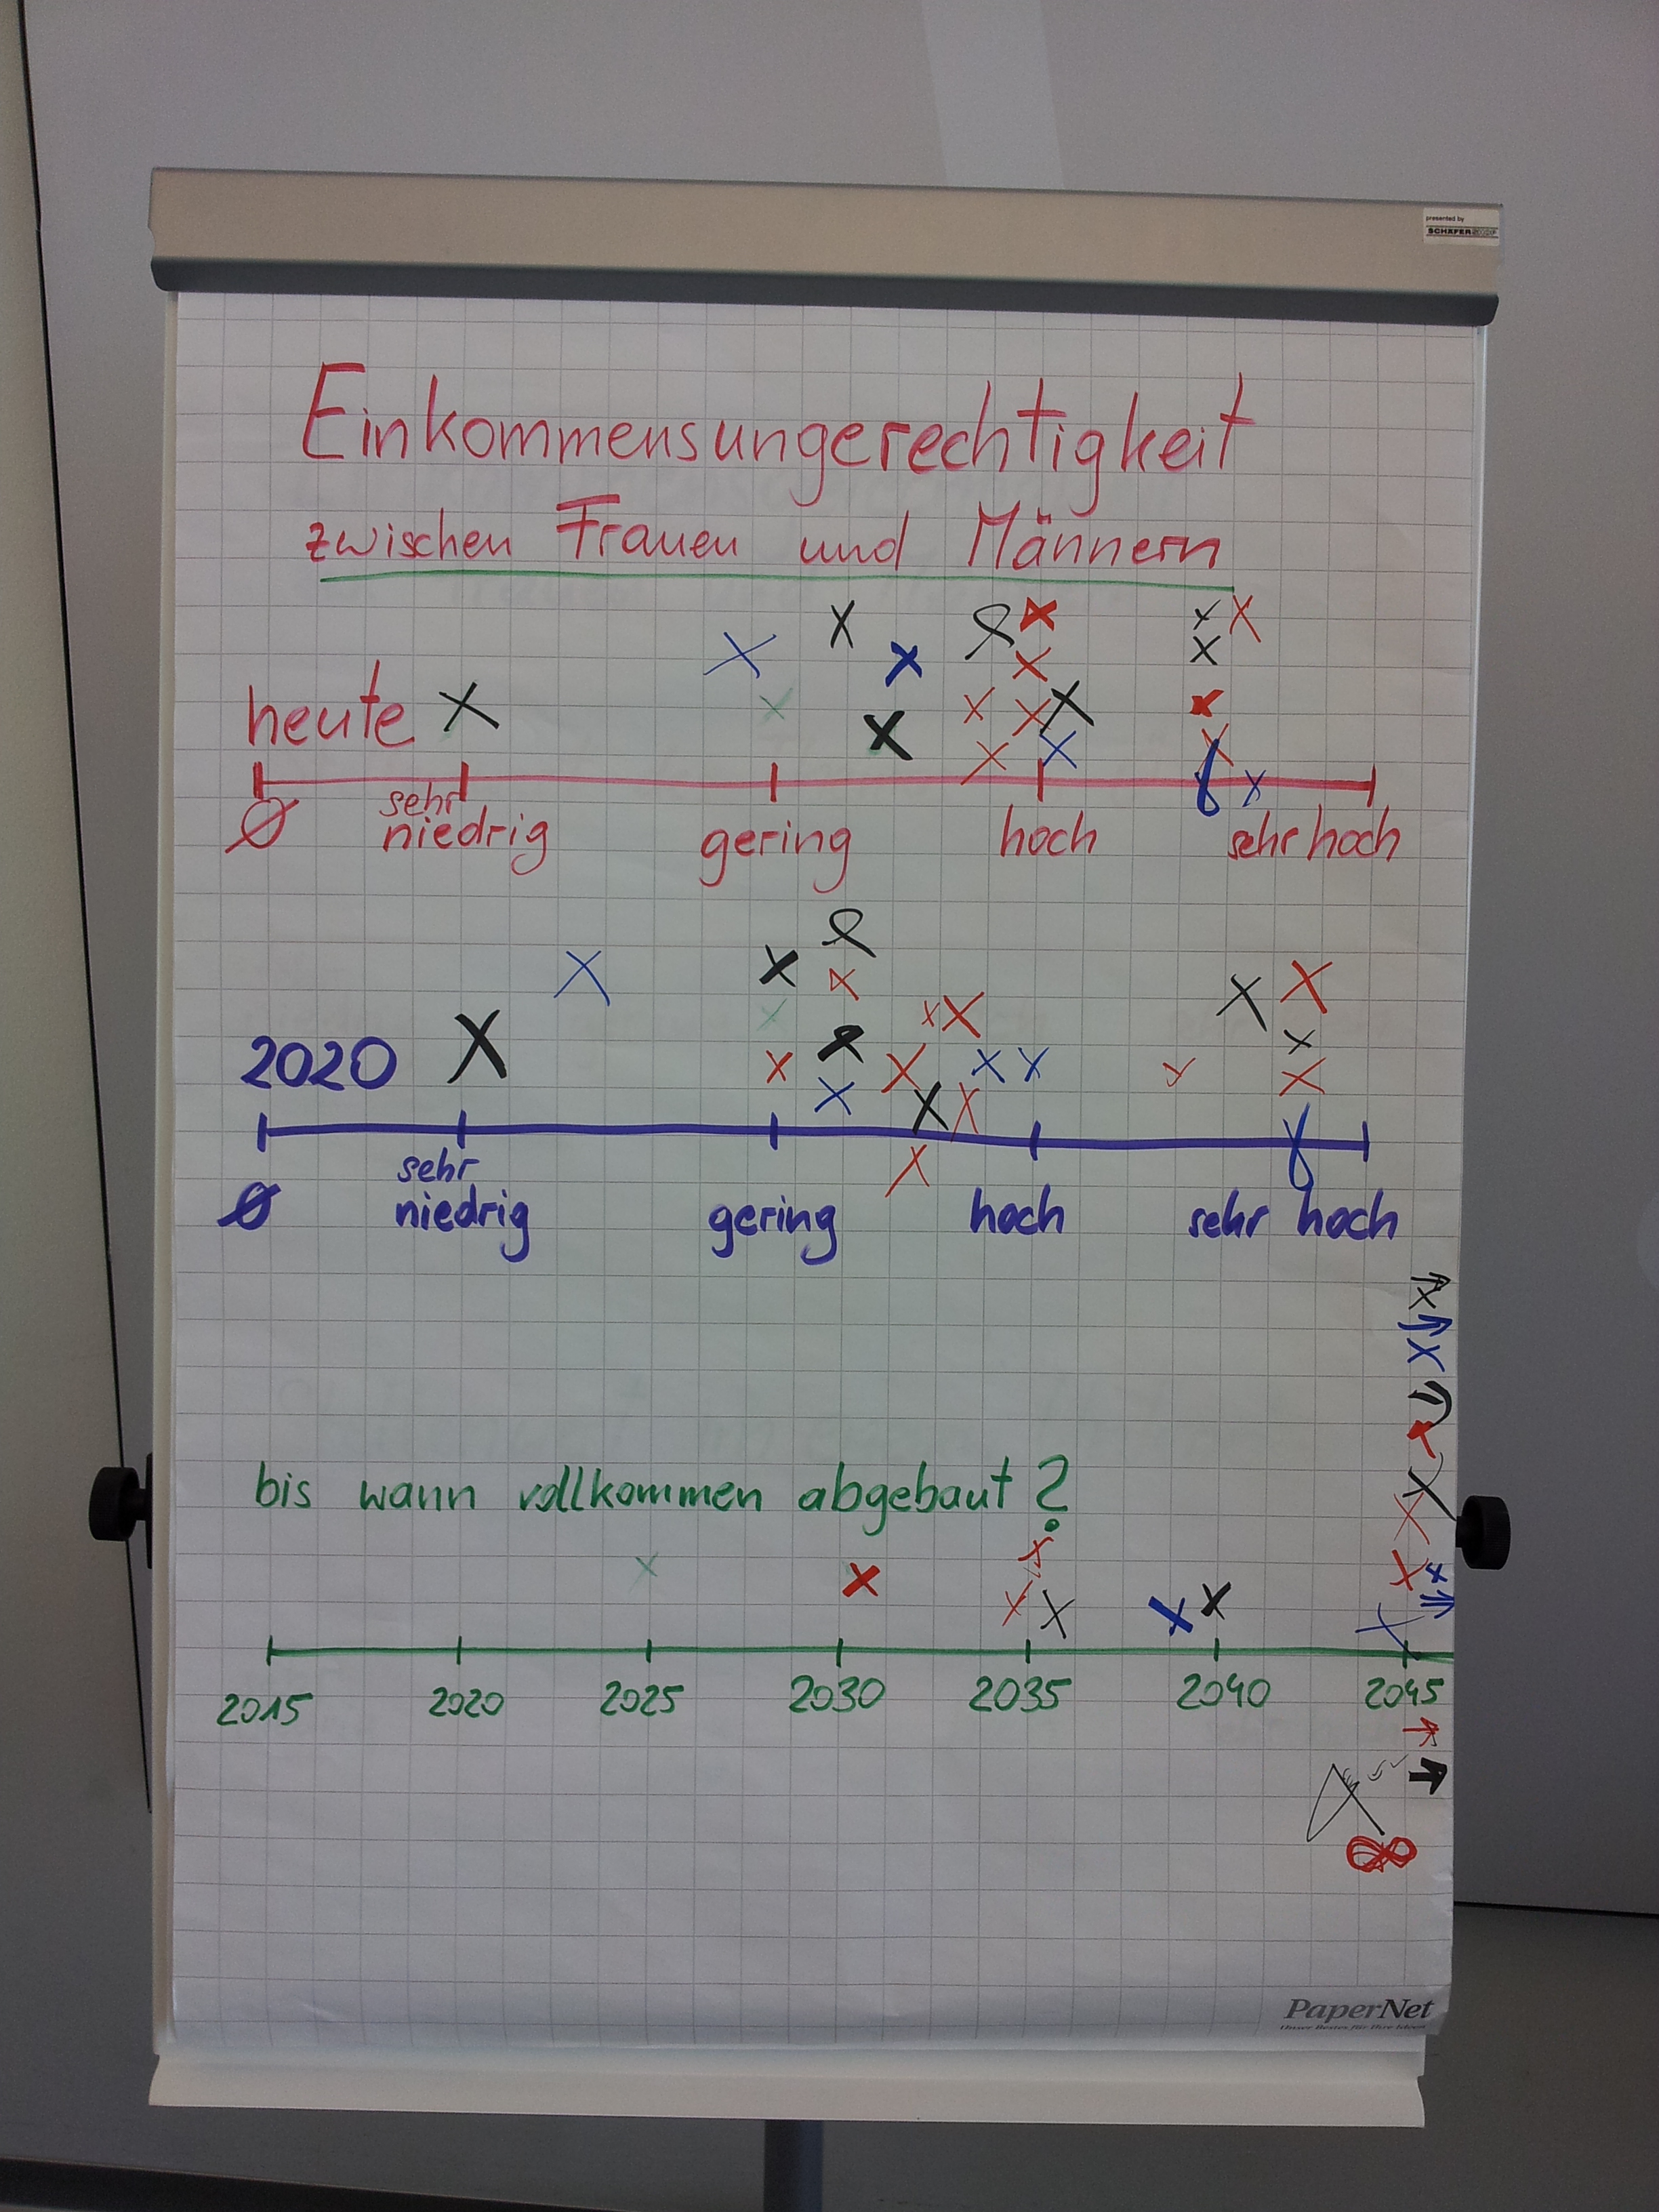 presented by
SCHÄFER
Einkommensungerechtigkeit
zwischen Frauen und Männern
heute
Ø sehr niedrig gering hoch sehr hoch
2020
Ø sehr niedrig gering hoch sehr hoch
bis wann vollkommen abgebaut?
2015 2020 2025 2030 2035 2040 2045
PaperNet